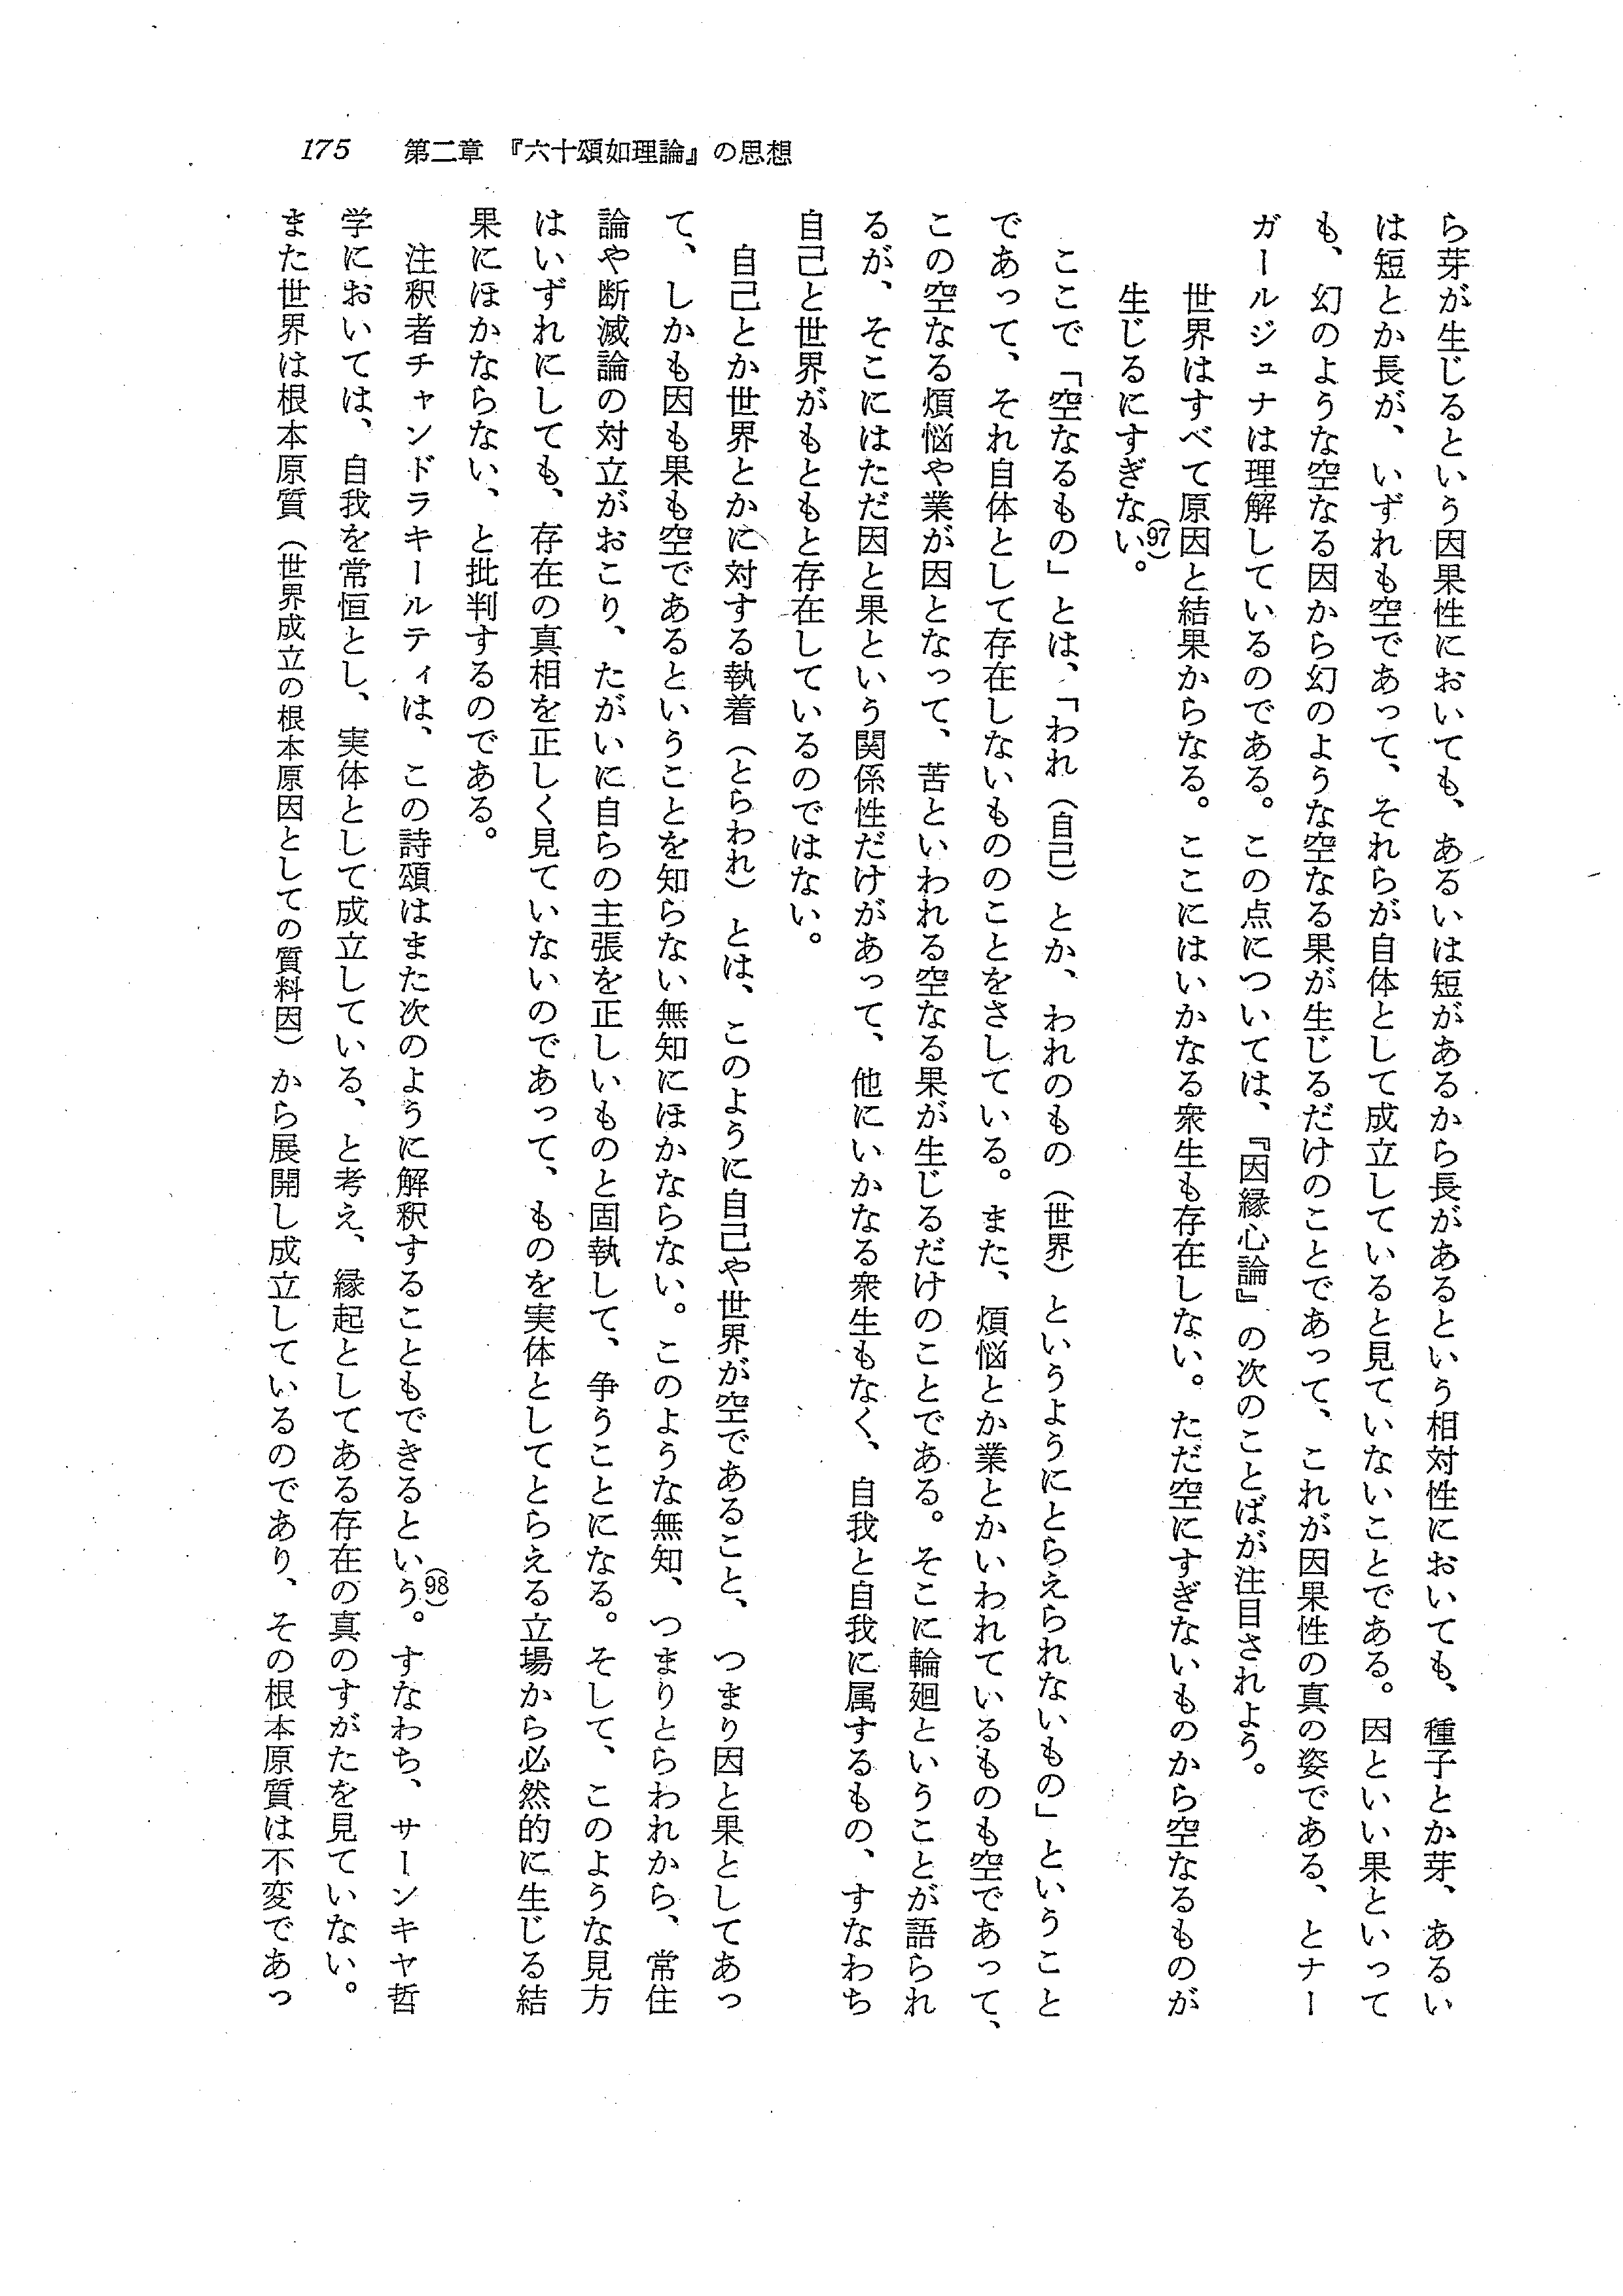 175 第二章 『六十頌如理論』の思想
ら芽が生じるという因果性においても、あるいは短があるから長があるという相対性においても、種子とか芽、あるい
は短とか長が、いずれも空であって、それらが自体として成立していると見ていないことである。因といい果といって
も、幻のような空なる因から幻のような空なる果が生じるだけのことであって、これが因果性の真の姿である、とナー
ガールジュナは理解しているのである。この点については、『因縁心論』の次のことばが注目されよう。
世界はすべて原因と結果からなる。ここにはいかなる衆生も存在しない。ただ空にすぎないものから空なるものが
生じるにすぎない。(97)
ここで「空なるもの」とは、「われ(自己)とか、われのもの(世界)というようにとらえられないもの」ということ
であって、それ自体として存在しないもののことをさしている。また、煩悩とか業とかいわれているものも空であって、
この空なる煩悩や業が因となって、苦といわれる空なる果が生じるだけのことである。そこに輪廻ということが語られ
るが、そこにはただ因と果という関係性だけがあって、他にいかなる衆生もなく、自我と自我に属するもの、すなわち
自己と世界がもともと存在しているのではない。
自己とか世界とかに対する執着(とらわれ)とは、このように自己や世界が空であること、つまり因と果としてあっ
て、しかも因も果も空であるということを知らない無知にほかならない。このような無知、つまりとらわれから、常住
論や断滅論の対立がおこり、たがいに自らの主張を正しいものと固執して、争うことになる。そして、このような見方
はいずれにしても、存在の真相を正しく見ていないのであって、ものを実体としてとらえる立場から必然的に生じる結
果にほかならない、と批判するのである。
注釈者チャンドラキールティは、この詩頌はまた次のように解釈することもできるという。(98)すなわち、サーンキヤ哲
学においては、自我を常恒とし、実体として成立している、と考え、縁起としてある存在の真のすがたを見ていない。
また世界は根本原質(世界成立の根本原因としての質料因)から展開し成立しているのであり、その根本原質は不変であっ